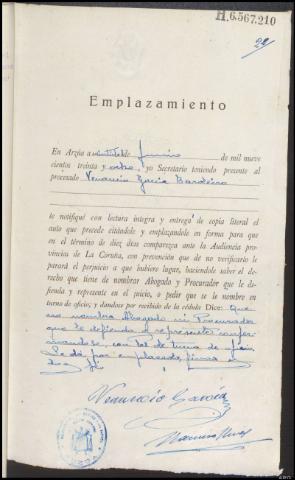 H.6.567.210
29
Emplazamiento
En Arzúa a de Junio de mil nueve
cientos treinta y ocho, yo Secretario teniendo presente al
procesado Venancio García Barreiro
te notifiqué con lectura íntegra y entregá de copia literal el
auto que precede citándole y emplazándole en forma para que
en el término de diez días comparezca ante la Audiencia pro-
vincial de La Coruña, con prevención que de no verificarlo le
parará el perjuicio a que hubiere lugar, haciéndole saber el de-
recho que tiene de nombrar Abogado y Procurador que le de-
fienda y represente en el juicio, o pedir que se le nombren en
turno de oficio; y dándose por recibido de la cédula Dice: Que
no nombra Abogado ni Procurador
que le defienda y represente confor-
mandose con los de turno de oficio
Se da por emplazado, firma y
doy fé
Venancio García